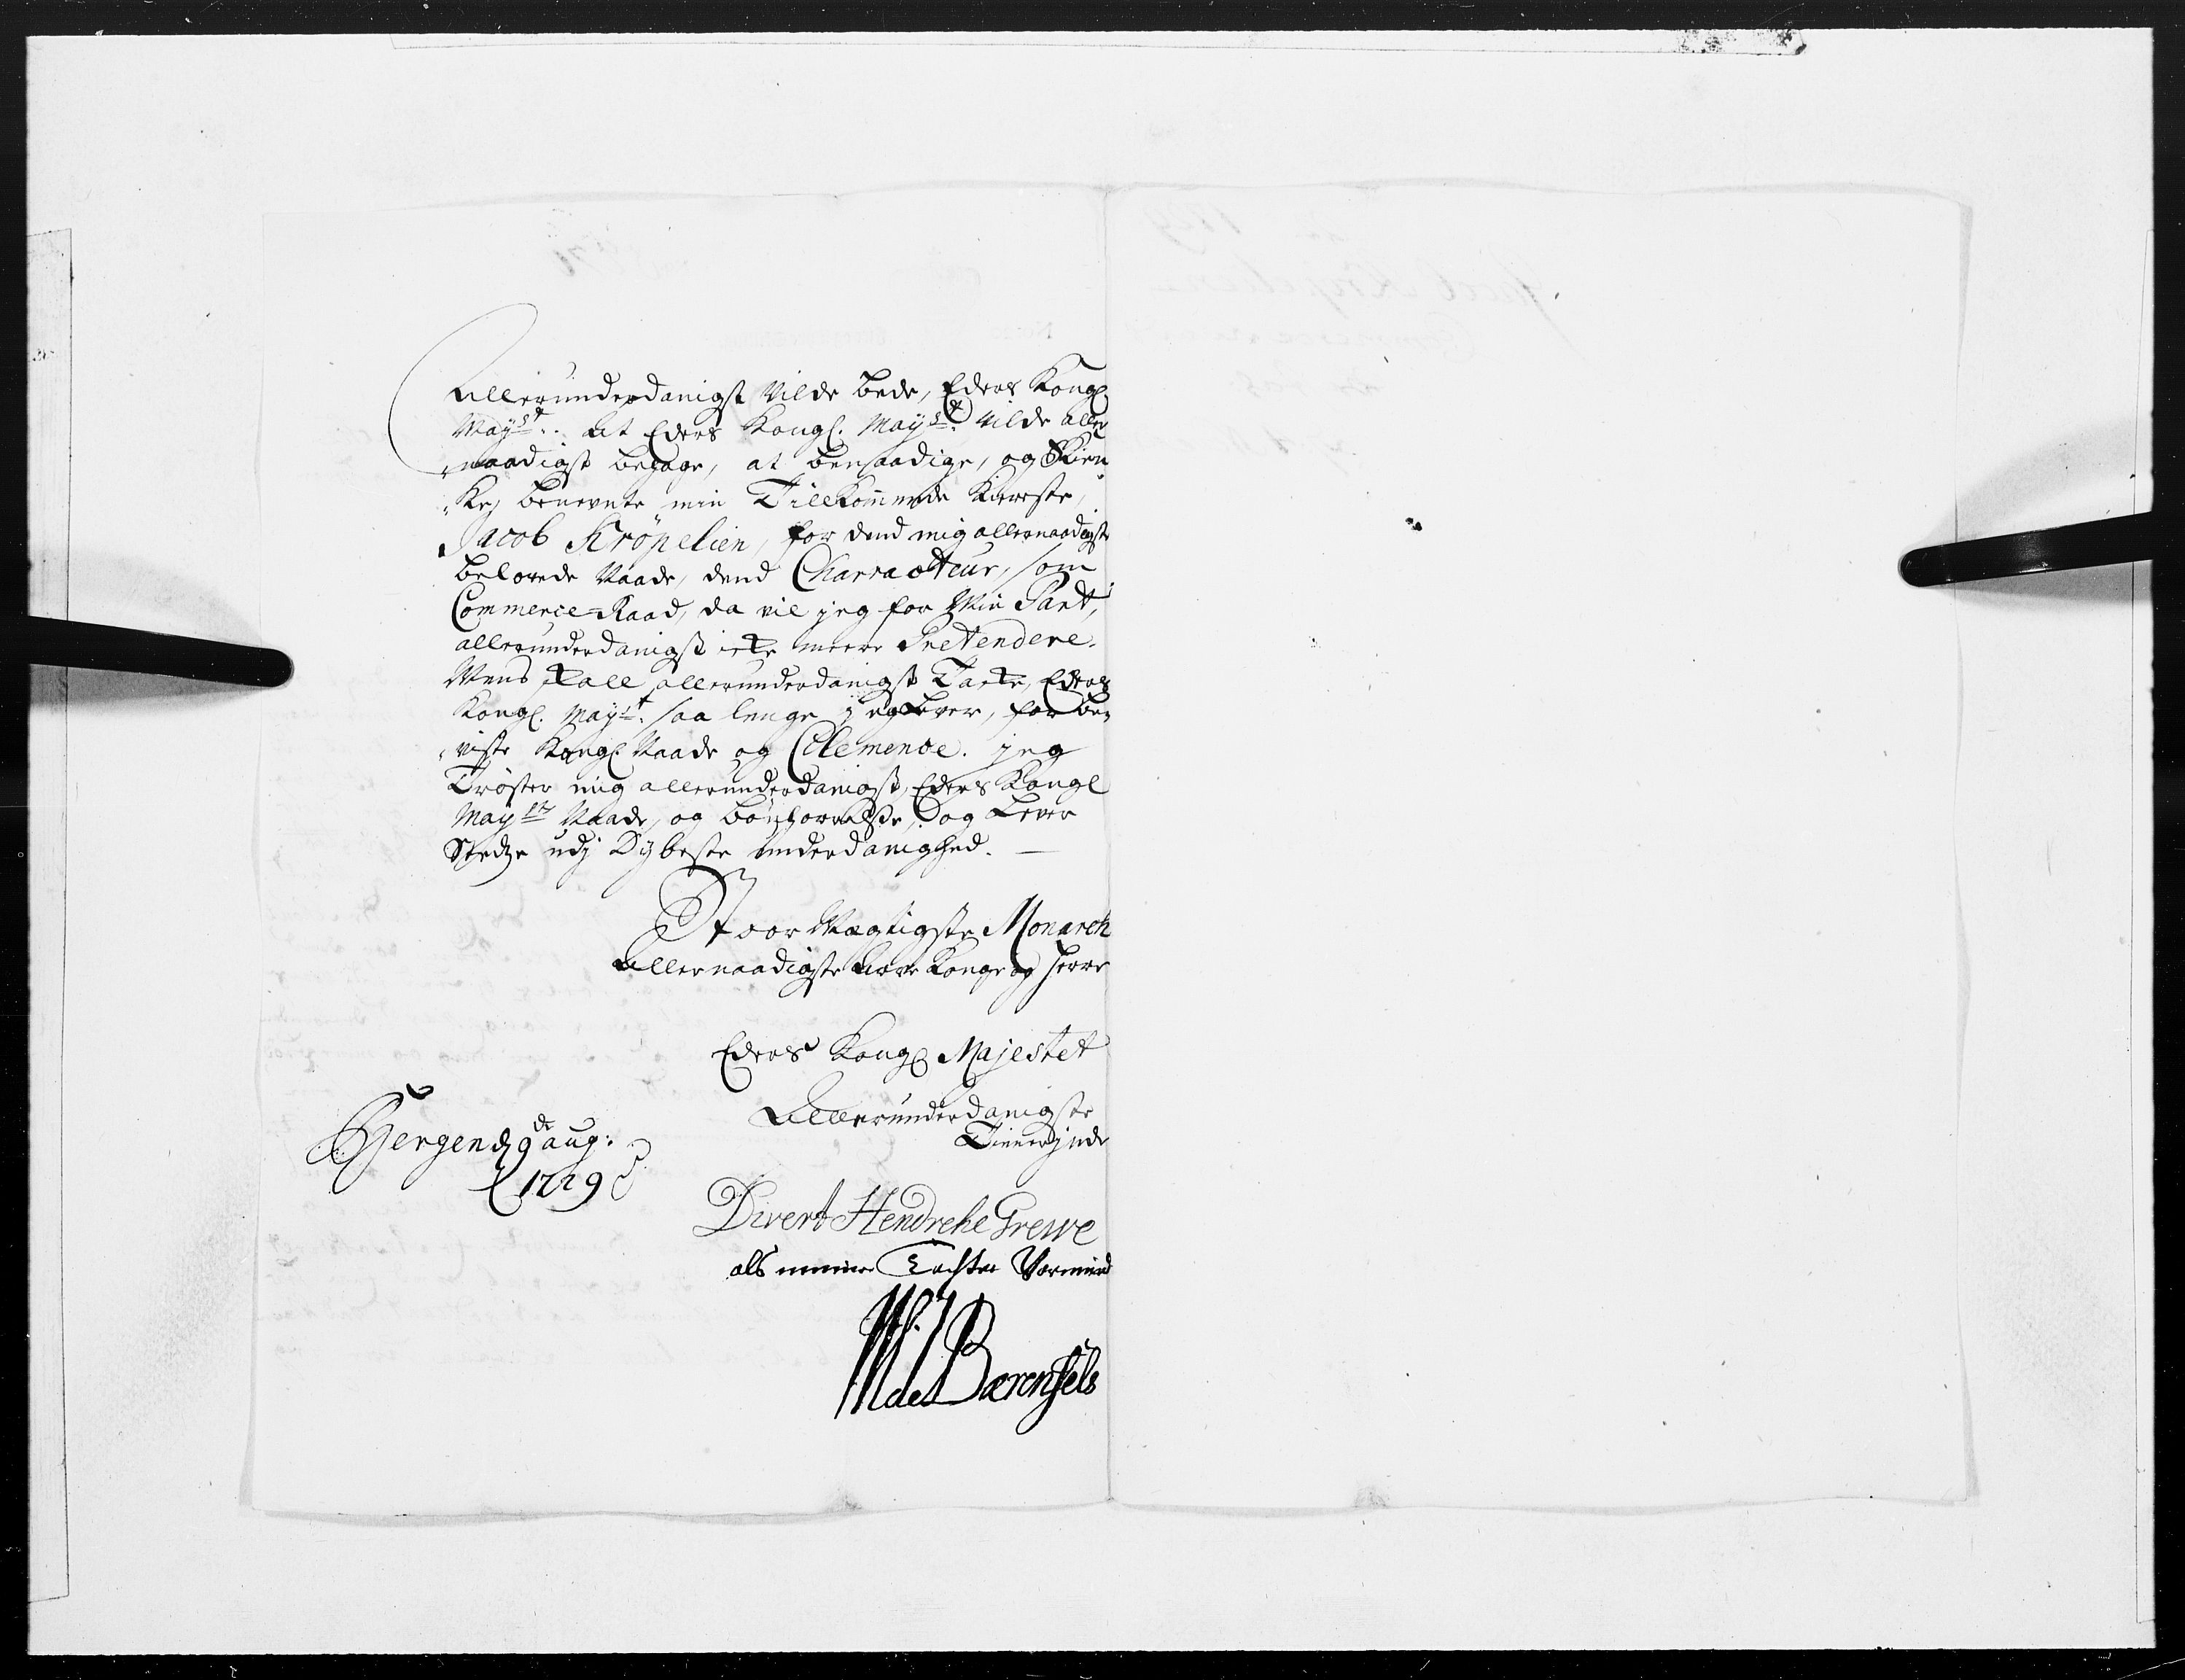 Allerunderdanigst Vilde bede, Eders Kongl:
Mayst:. At Eders Kongl. Mayst: vilde aller
naadigst behage, at benaadige, og Skien
ke, benevnte min Tillkommende Kiereste,
Jacob Kröpelien, for dend mig allernaadigste
belovede Naade, dend Charracteur, som
Commerce-Raad, da vil jeg for Min Part,
allerunderdanigst icke meere Pretendere.
Mens skall allerunderdanigst Tacke, Eders
Kongl. Mayst: saa lenge jeg Lever, for be
viste Kongl Naade og Clemence. jeg
Tröster mig allerunderdanigst, Eders Kongl
Mayts Naade, og bönhörrelsse, og Lever
Stedze udj Dybeste underdanighed.
Stoor Mægtigste Monarch
Allernaadigste Arve Konge og Herre
Eders Kongl Majestet
Allerunderdanigste
Tiennerjnde
Bergen d 9de aug:
1729
Divert Hendrche Grewe
als meiner Tochter Vormund
de Bærenfels